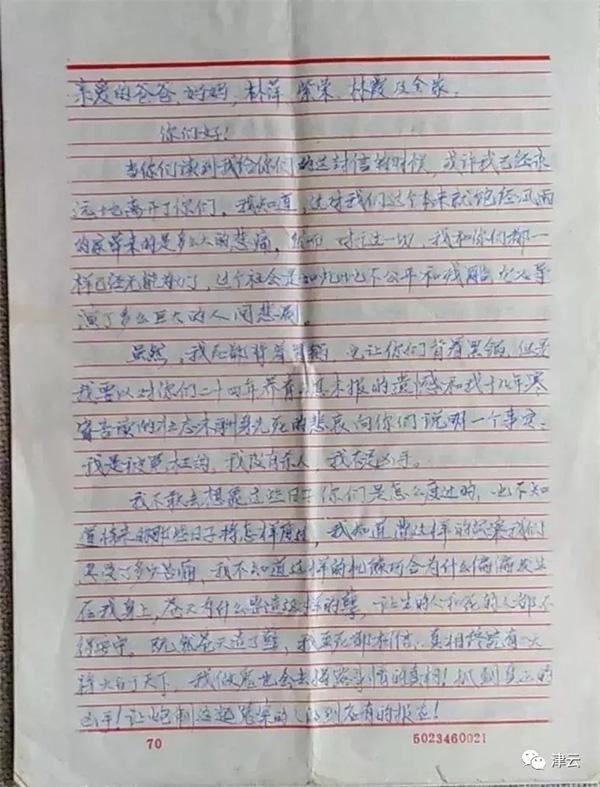 亲爱的爸爸、妈妈,林萍、紫荣、林霞及全家:
你们好!
当你们读到我给你们的这封信的时候,或许我已经永
远地离开了你们。我知道,这对我们这个本来就饱经风雨
的家带来的是多么大的悲痛。然而,对于这一切,我和你们都一
样已经无能为力,这个社会是如此地不公平和残酷,它又导
演了多么巨大的人间悲剧。
虽然,我死都背着黑锅,也让你们背着黑锅,但是
我要以对你们二十四年养育之恩未报的遗憾和我十几年寒
窗苦读的壮志未酬身先死的悲哀向你们说明一个事实:
我是被冤枉的,我没有杀人,我不是凶手。
我不敢去想象这些日子你们是怎么度过的,也不知
道将来的那些日子将怎样度过,我知道出这样的冤案我们
受了多少苦痛,我不知道这样的机缘巧合为什么偏偏发生
在我身上,苍天为什么要造这样的孽,让生的人和死的人都不
得安宁。既然苍天造了孽,我至死都相信,真相终究有一天
将大白于天下,我做鬼也会去揭露事情的真相!抓到真正的
凶手!让炮制这起冤案的人得到应有的报应!
70 5023460021
津云